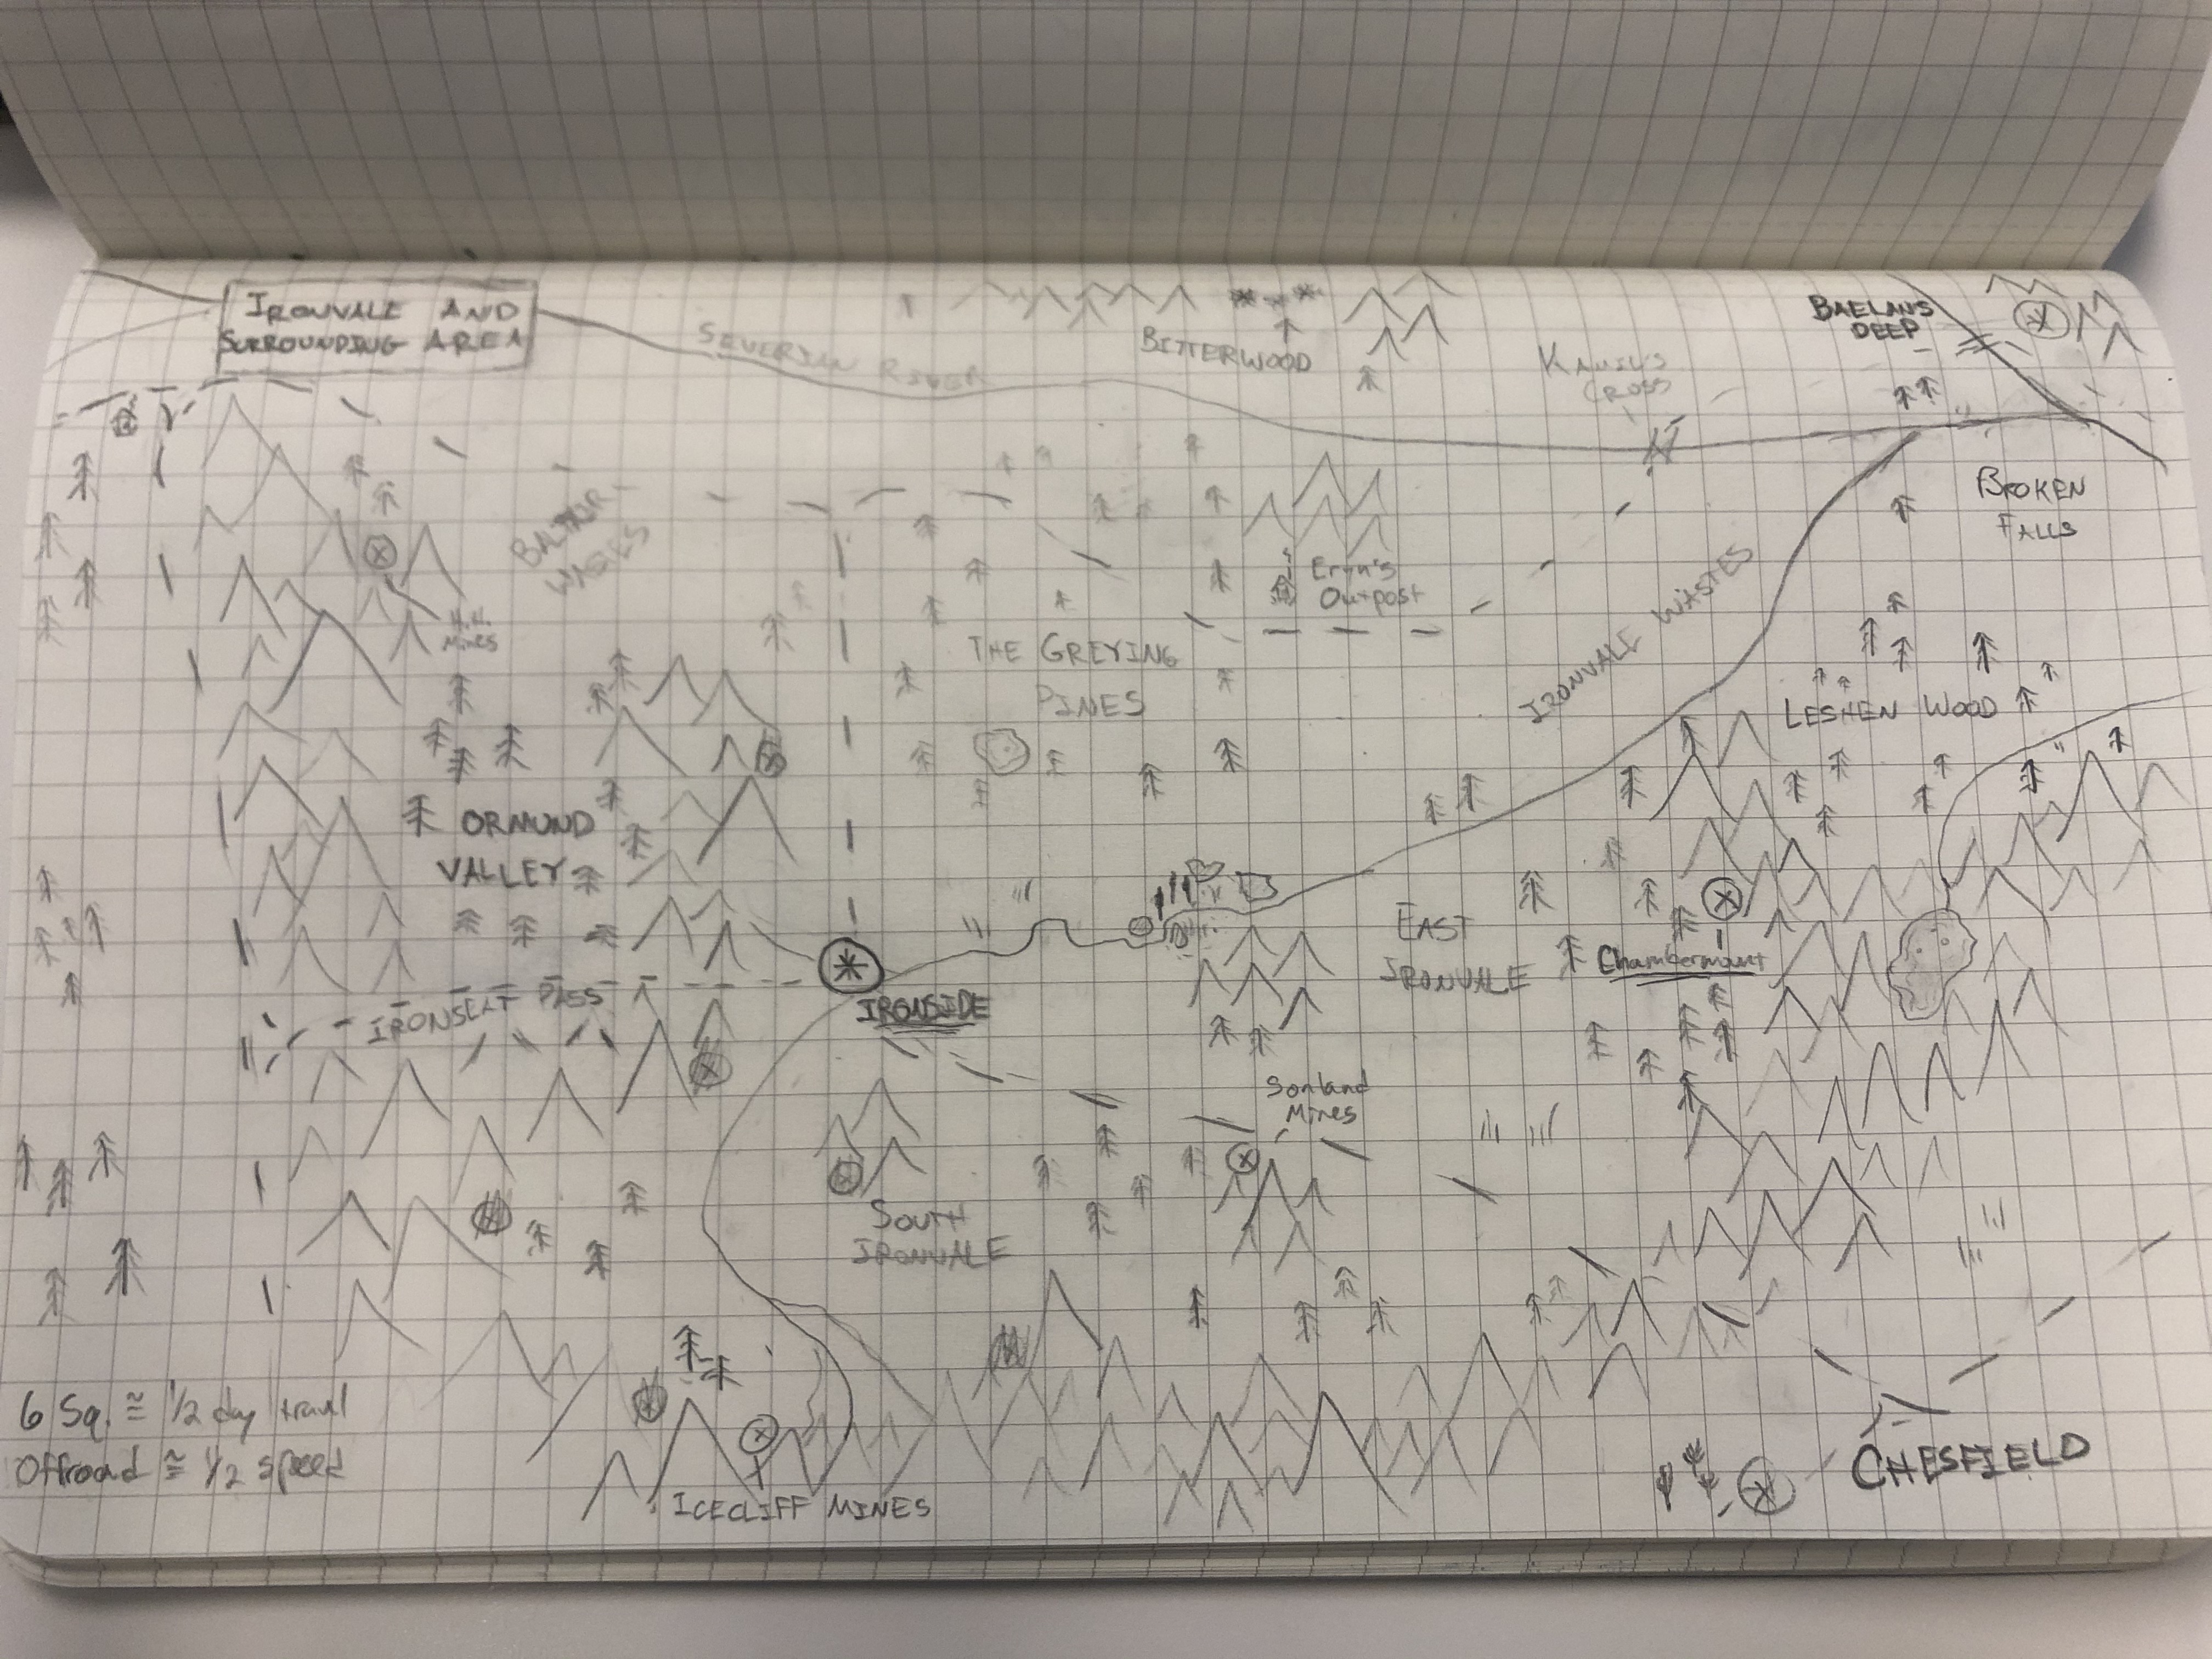 IRONVALE AND
SURROUNDING AREA
SEVERIAN RIVER
BITTERWOOD
KAMIL'S
CROSS
BAELANS
DEEP
BROKEN
FALLS
H.H.
Mines
Eryn's
Outpost
THE GREYING
PINES
IRONVALE WASTES
LESHEN WOOD
ORMUND
VALLEY
EAST
IRONVALE
Chambermount
IRONSLAT PASS
IRONSIDE
Sonland
Mines
SOUTH
IRONVALE
6 Sq. ≅ 1/2 day travl
Offroad ≅ 1/2 speed
ICECLIFF MINES
CHESFIELD